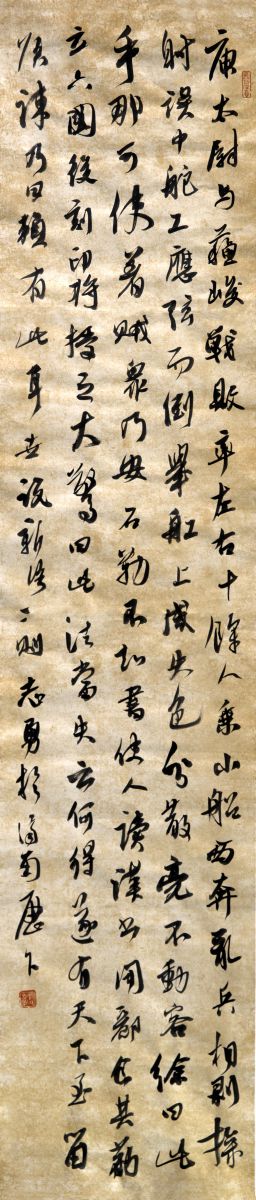 庾太尉与蘇峻戰敗率左右十餘人乘小船西奔亂兵相剝掠
射誤中舵工應弦而倒舉舡上咸失色分散亮不動容徐曰此
手那可使著賊衆乃安石勒不知書使人讀漢書聞酈食其勸
立六國後刻印將授之大驚曰此法當失云何得遂有天下至留
侯諫乃曰賴有此耳世說新語二則志勇於濟南歷下